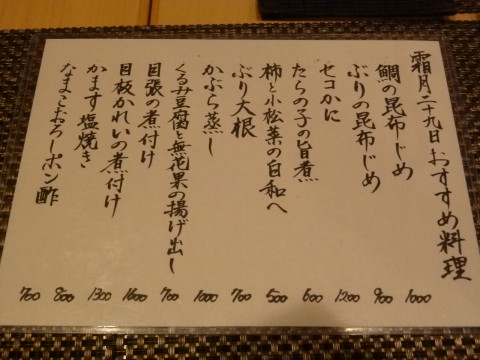 霜月二十九日おすすめ料理
鯛の昆布じめ 1000
ぶりの昆布じめ 900
セコかに 1200
たらの子の旨煮 600
柿と小松菜の白和へ 500
ぶり大根 700
かぶら蒸し 1000
くるみ豆腐と無花果の揚げ出し 700
目張の煮付け 1600
目板かれいの煮付け 1300
かます塩焼き 800
なまこおろしポン酢 700